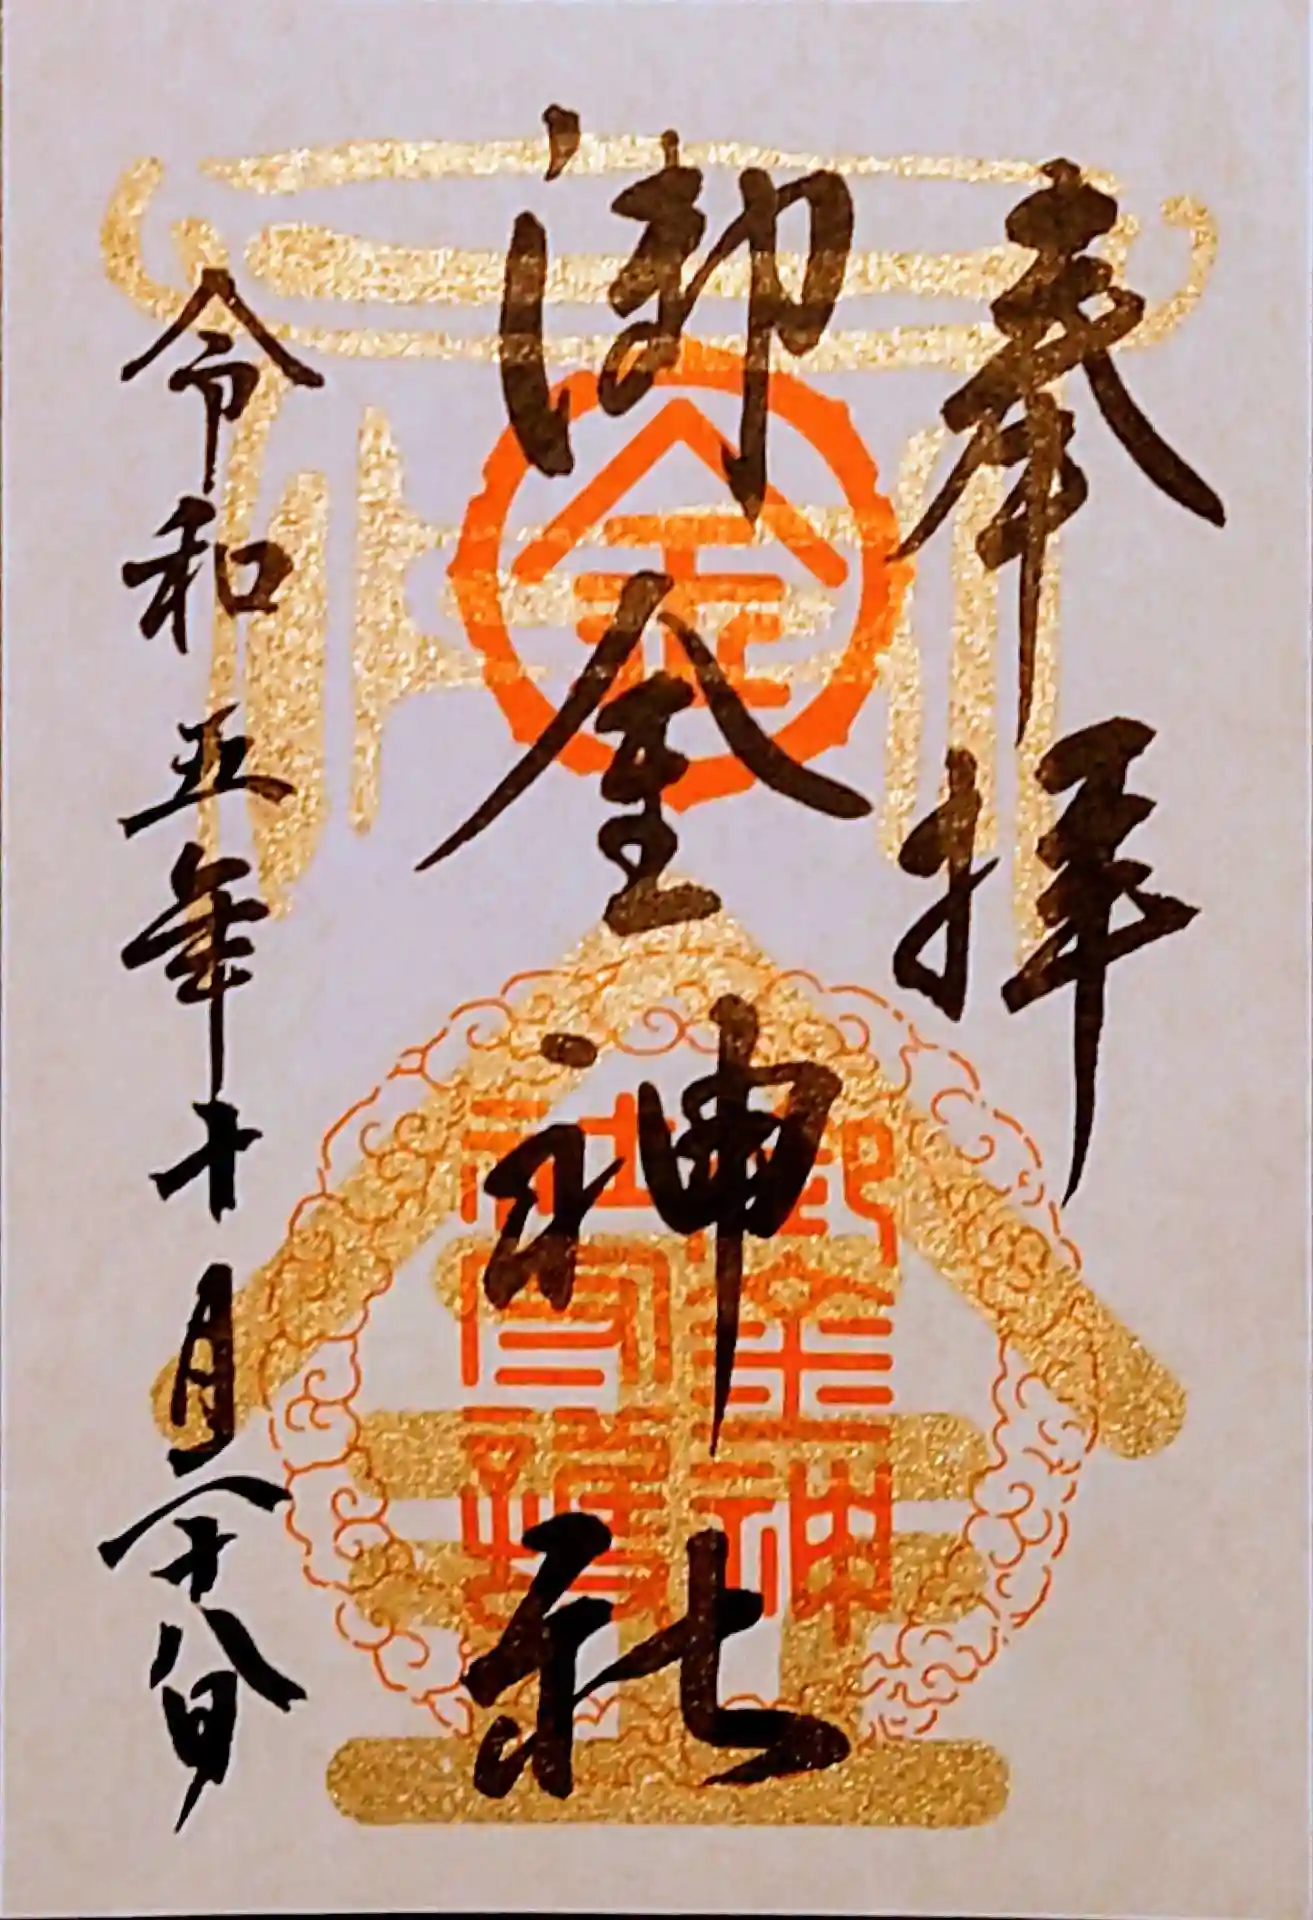 奉拝
御金神社
令和五年十月二十八日
金
御金神
社